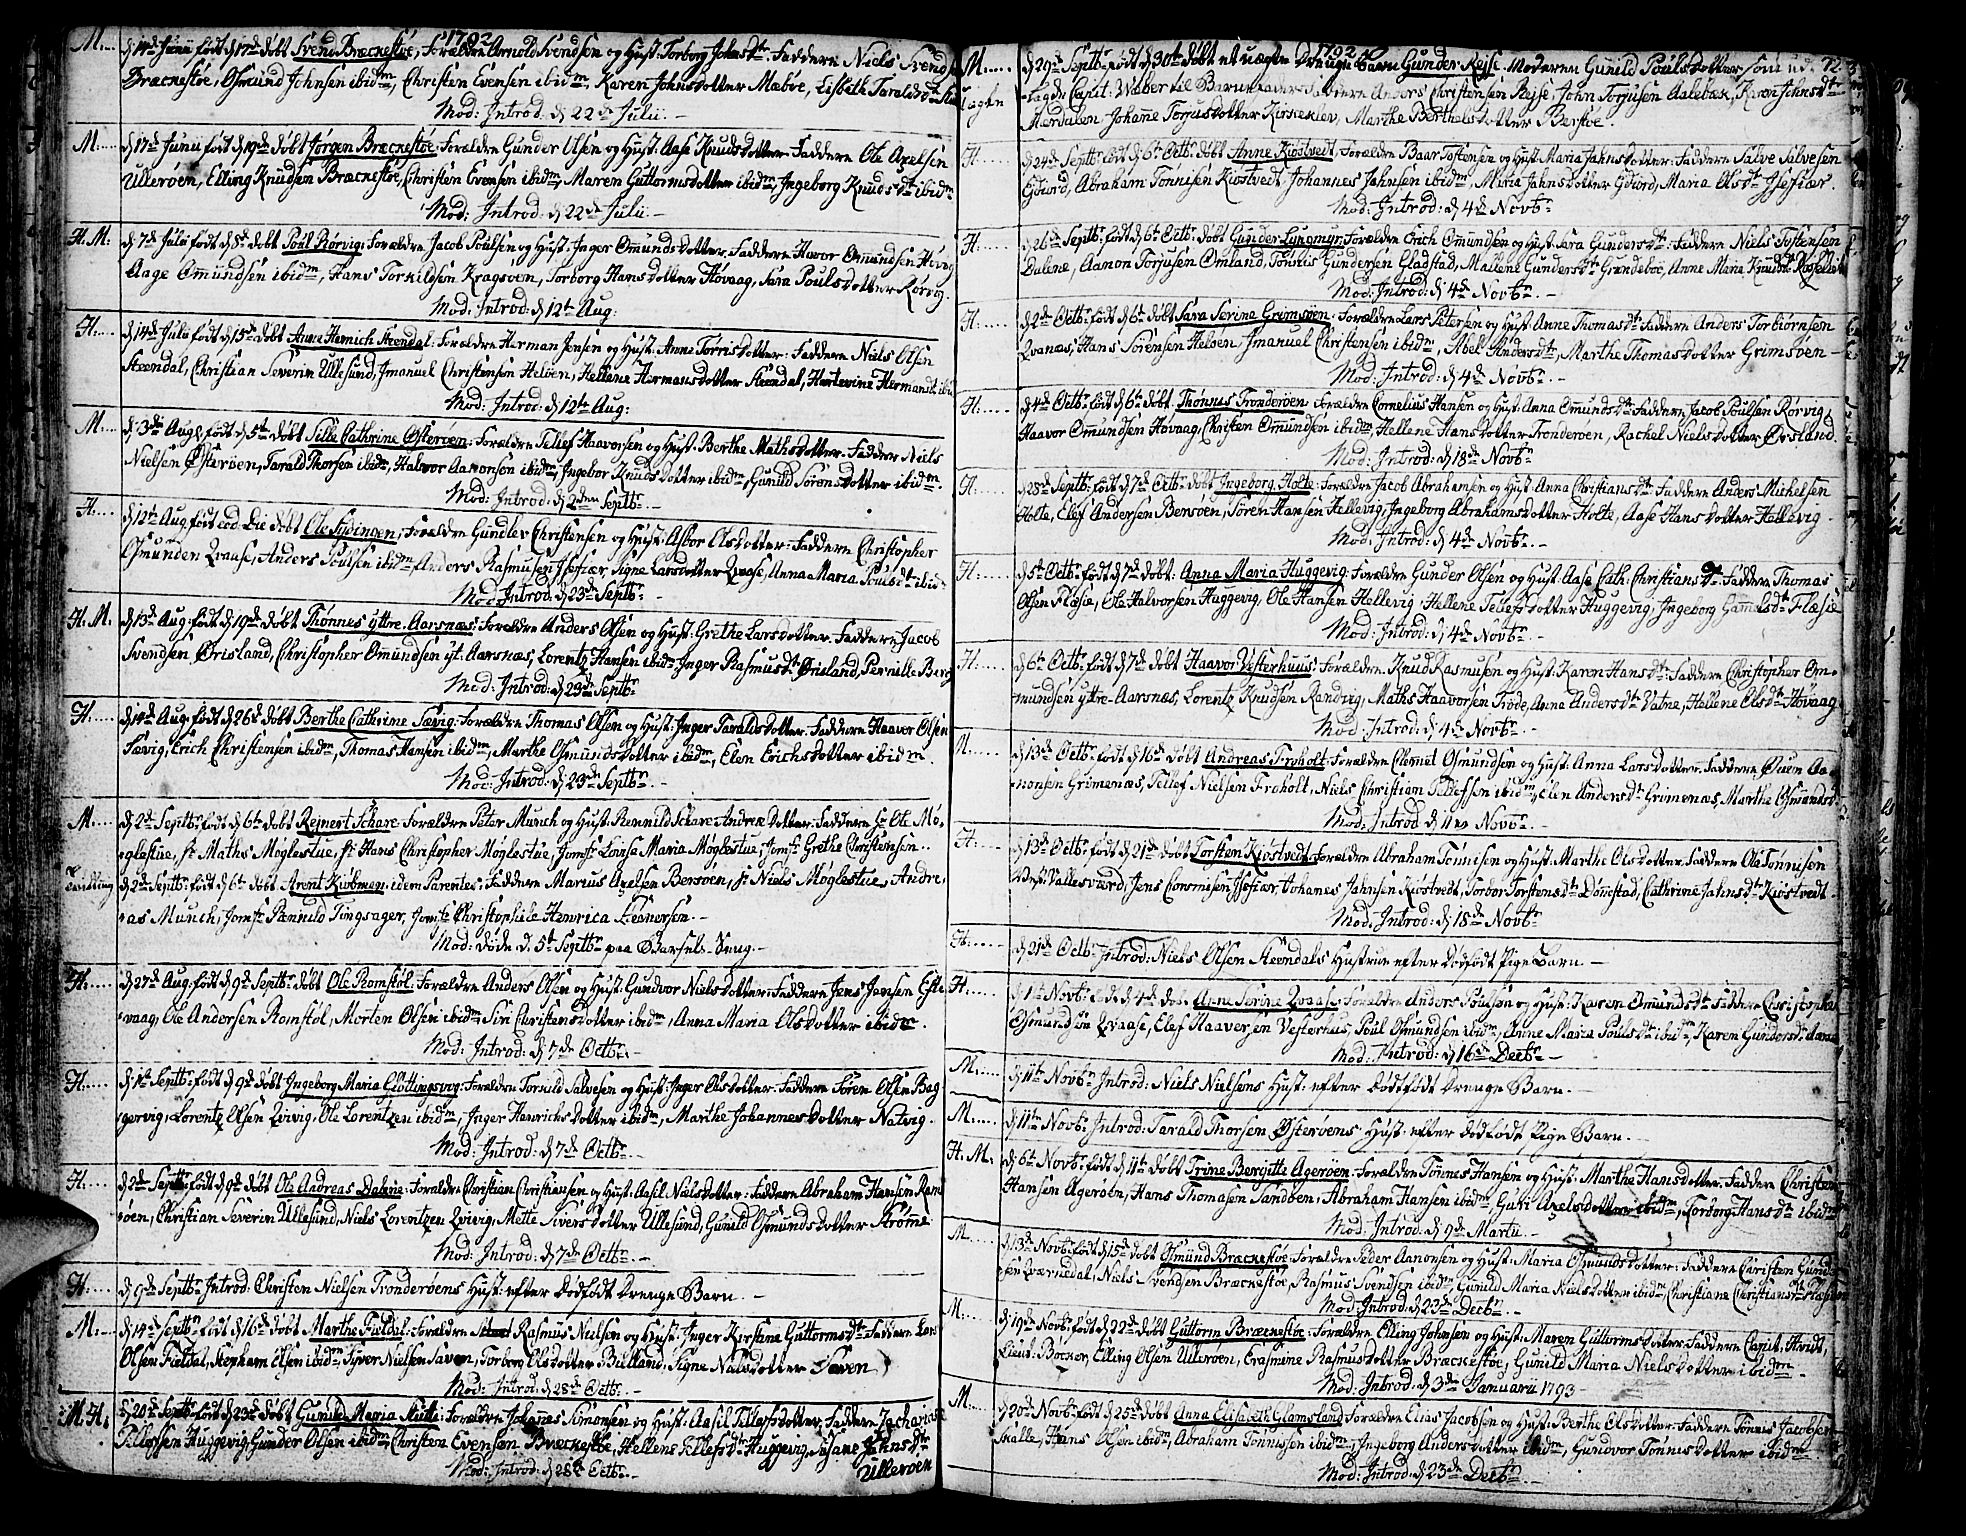 1792
M. d 14de Junii født d 17de døbt Svend Bræcnestøe, Forældre Arnold Svendsen og Hust: Torborg Johnsdtr. Faddere Niels Svends
Bræcnestøe, Osmund Johnsen ibidm, Christen Evensen ibidm, Karen Johnsdotter Mæbøe, Lisbeth Taraldsdtr
Mod: Introd: d 22de Julii.
M. d 17de Junii født d 19de døbt Jørgen Bræcnestøe: Forældre Gunder Olsen og Hust: Aase Knudsdotter: Faddere Ole Axelsen
Ullerøen, Elling Knudsen Bræcnestøe, Christen Evensen ibidm, Maren Guttormsdotter ibidm, Ingeborg Knudsdtr ibidm
Mod: Introd: d 22de Julii.
H. M: d 7de Julii født d 8de døbt Poul Rørvig: Forældre Jacob Poulsen og Hust: Inger Omundsdotter: Faddere Havor Omundsen Høvag
Aage Omundsen ibidm, Hans Torkildsen Kragsøen, Torborg Hansdotter Høvaag, Sara Poulsdotter Rørvig.
Mod: Introd: d 12te Aug:
H. d 14de Julii født d 15de døbt Anne Henrich Steendal: Forældre Herman Jensen og Hust: Anne Torrisdotter: Faddere Niels Olsen
Steendal, Christian Severin Ullesund, Jmanuel Christensen Heløen, Hellene Hermansdotter Steendal, Hartevine Hermansdtr ibid
Mod: Introd: d 12te Aug:
M. d 3de Aug: født d 5te døbt Sille Cathrine Østerøen: Forældre Tellef Haavorsen og Hust: Berthe Mathsdotter: Faddere Niels
Nielsen Østerøen, Tarald Thorsen ibidm, Halvor Aanonsen ibidm, Ingebor Knudsdotter ibidm, Gunild Sørensdotter ibidm.
Mod: Introd: d 2den Septbr.
H. d 12te Aug. født eod: Die døbt Ole Støvingen, Forældre Gundlev Christensen og Hust: Asbor Olsdotter: Faddere Christopher
Osmunden Qvaase, Anders Poulsen ibidm, Anders Rasmusen Isefiær, Signe Larsdotter Qvaase, Anna Maria Poulsdtr ibid.
Mod: Introd: d 23de Septbr.
H. M. d 13de Aug: født d 19de døbt Thønnes yttre Aarsnæs: Forældre Anders Olsen og Hust: Grethe Larsdotter: Faddere Jacob
Svendsen Ørisland, Christopher Omundsen yt. Aarsnæs, Lorentz Hansen ibidm, Inger Rasmusdtr Ørisland, Pernille Berg
Mod: Introd: d 23de Septbr.
H. d 14de Aug: født d 26de døbt Berthe Cathrine Sævig: Forældre Thomas Olsen og Hust: Inger Taraldsdotter: Faddere Haavor Olsen
Sævig, Erich Christensen ibidm, Thomas Hansen ibidm, Marthe Osmundsdotter ibidm, Elen Erichsdotter ibidm.
Mod: Introd: d 23de Septbr.
M. d 2de Septbr: født d 6te døbt Rejnert Schare: Forældre Peter Munch og Hust: Rennild Schare Andreædotter: Faddere Sr Ole Mø-
glestue, Sr Maths Møglestue, Sr Hans Christopher Møglestue, Jomfr: Lovise Maria Møglestue, Jomfr: Grethe Christensen.
Tvilling d 2de Septbr: født d 6te døbt Arent Kiøbman, idem Parentes: Faddere Marius Axelsen Bersøen, Sr Niels Møglestue, Andre-
as Munch, Jomfr: Rænnild Tingsager, Jomfr: Christophile Henrica Steenersen.
Mod: døde d. 5te Septbr paa Barsel-Seng.
H. d 27de Aug: født d 9de Septbr: døbt Ole Romstøl: Forældre Anders Olsen og Hust: Gundvor Nielsdotter: Faddere Jens Jensen Este-
vaag, Ole Andersen Romstøl, Morten Olsen ibidm, Siri Christensdotter ibidm, Anna Maria Olsdotter ibidm.
Mod: Introd: d 7de Octbr.
H. d 1ste Septbr: født d 9de døbt Ingeborg Maria Glottingsvog: Forældre Torkild Salvesen og Hust: Inger Olsdotter: Faddere Søren Olsen Bag
gervig, Lorentz Olsen Qvivig, Ole Lorentzen ibidm, Inger Henrichsdotter ibidm, Marthe Johannesdotter Natvig.
Mod: Introd: d 7de Octbr.
H. d 2de Septbr: født d 9de døbt Ole Andreas Dalene: Forældre Christian Christiansen og Hust: Aasil Nielsdotter: Faddere Abraham Hansen Ram
søen, Christian Severin Ullesund, Niels Lorentzen Qvivig, Mette Siversdotter Ullesund, Gunild Osmundsdotter Strømme
Mod: Introd: d 7de Octbr.
H. d 9de Septbr: Introd: Christen Nielsen Tronderøens Hust: efter Dødfødt Drenge Barn.
M. d 14de Septbr: født d 16de døbt Marthe Fieldal: Forældre Rasmus Nielsen og Hust: Inger Kirstine Guttormsdtr: Faddere Lars
Olsen Fieldal, Stephan Olsen ibidm, Syver Nielsen Saven, Torborg Olsdotter Birkland, Signe Nilsdotter Saven
Mod: Introd: d 28de Octbr.
M. H. d 20de Septbr: født d 23de døbt Gunild Maria Stutte: Forældre Johannes Simonsen og Hust: Aasil Tellefsdotter: Faddere Zacharias
Tellefsen Huggevig, Gunder Olsen ibidm, Christen Evensen Bræcnestøe, Hellene Tellefsdtr Huggevig, Susane Johnsdtr
Mod: Introd: d 28de Octbr. Ullerøen
1792 123
M. uægte d 29de Septbr: født d 30te døbt et uægte Drenge Barn Gunder Reise. Moderen Gunild Poulsdotter, som ud-
lagde Capit: Weber til Barnefader. Faddere Anders Christensen Reise, John Torjusen Aalebæk, Karen Johnsdtr
Hærdalen, Johanne Torjusdotter Kirkeklev, Marthe Berthelsdotter Berstøe.
H. d 24de Septbr: født d 6te Octbr: døbt Anne Kiostvedt, Forældre Baar Tostensen og Hust: Maria Jahnsdotter: Faddere Salve Salvesen
Gdiord, Abraham Tønnisen Kiostvedt, Johannes Jahnsen ibidm, Maria Jahnsdotter Gdiord, Maria Olsdtr Isefiær.
Mod: Introd: d 4de Novbr.
H. d 26de Septbr: født d 6te Octbr: døbt Gunder Lyngmyr: Forældre Erich Omundsen og Hust: Sara Gundersdtr: Faddere Niels Tostensen
Dalene, Aanon Torjusen Omland, Tønnis Gundersen Gladstad, Mallene Gundersdtr Grundebøe, Anne Maria Knudsdtr
Mod: Introd: d 4de Novbr.
H. d 2de Octbr: født d 6te døbt Sara Serine Grimsøen: Forældre Lars Petersen og Hust: Anne Thomasdtr: Faddere Anders Torbiørnsen
Qvanæs, Hans Sørensen Heløen, Jmanuel Christensen ibidm, Abel Andersdtr, Marthe Thomasdotter Grimsøen
Mod: Introd: d 4de Novbr.
H. d 4de Octbr: født d 6te døbt Thønnis Tronderøen: Forældre Cornelius Hansen og Hust: Anna Omundsdtr: Faddere Jacob Poulsen Rørvig,
Haavor Omundsen Høvaag, Christen Omundsen ibidm, Hellene Hansdotter Tronderøen, Rachel Nielsdotter Ørisland.
Mod: Introd: d 18de Novbr.
H. d 25de Septbr: født d 7de Octbr: døbt Ingeborg Holte: Forældre Jacob Abrahamsen og Hust: Anna Christiansdtr: Faddere Anders Michelsen
Holte, Elef Andersen Bersøen, Søren Hansen Hellevig, Ingeborg Abrahamsdotter Holte, Aase Hansdotter Hellevig.
Mod: Introd: d 4de Novbr.
H. d 5te Octbr: født d 7de døbt: Anna Maria Huggevig: Forældre Gunder Olsen og Hust: Aase Cath: Christiansdtr: Faddere Thomas
Olsen Flæsie, Ole Halvorsen Huggevig, Ole Hansen Hellevig, Hellene Tellefsdotter Huggevig, Ingeborg Gamelsdtr Flæsie
Mod: Introd: d 4de Novbr.
H. d 6te Octbr: født d 7de døbt Haavor Vesterhuus: Forældre Knud Rasmusen og Hust: Karen Hansdtr: Faddere Christopher Om-
mundsen yttre Aarsnes, Lorentz Knudsen Randvig, Maths Haavorsen Trøde, Anna Andersdtr Vatne, Hellene Olsdtr Høvaag
Mod: Introd: d 4de Novbr.
M. d 13de Octbr: født d 16de døbt Andreas Froholt: Forældre Clemet Osmundsen og Hust: Anna Larsdotter: Faddere Øuem Aa-
nonsen Grimenæs, Tellef Nielsen Froholt, Niels Christian ibidm, Elen Andersdtr Grimenæs, Marthe Osmunds
Mod: Introd: d 11te Novbr.
H. d 13de Octbr: født d 21de døbt Torsten Kiøstvedt: Forældre Abraham Tønnisen og Hust: Marthe Olsdotter: Faddere Ole Tønnisen
Vallesværd, Jens Isefiær, Johanes Jahnsen Kiøstvedt, Torbor Torstensdtr Dønestad, Cathrine Jahnsdtr Kiøstvedt.
Mod: Introd: d 18de Novbr
H. d 21de Octbr Introd: Niels Olsen Steendals Hustrue efter Dødfødt Pige Barn.
H. d 1ste Novbr: født d 4de døbt Anne Serine Qvaase: Forældre Anders Poulsen og Hust: Karen Omundsdtr: Faddere Christopher
Osmundsen Qvaase, Elef Haaversen Vesterhus, Poul Osmundsen ibidm, Anne Maria Poulsdtr ibidm, Karen Gundersdtr
Mod: Introd: d 16de Decbr.
M. d 11te Novbr Introd: Niels Nielsens Hust: efter Dødfødt Drenge Barn.
M. d 11te Novbr: Introd: Tarald Thorsen Østerøens Hust: efter Dødfødt Pige Barn.
H. M. d 6te Novbr: født d 11te døbt Trine Bergitte Agerøen: Forældre Tønnes Hansen og Hust: Marthe Hansdotter: Faddere Christen
Hansen Agerøen, Hans Thomasen Sandøen, Abraham Hansen ibidm, Guri Axelsdotter ibidm, Torborg Hansdtr ibidm
Mod: Introd: d 9de Martii.
M. d 13de Novbr: født d 15de døbt Osmund Bræcnestøe: Forældre Peder Aanonsen og Hust: Maria Osmundsdotter: Faddere Christen Gund-
sen Qværnedal, Niels Svendsen Bræcnestøe, Rasmus Svendsen ibidm, Gunild Maria Nielsdotter ibidm, Christiane Christiansdtr
Mod: Introd: d 23de Decbr.
M. d 19de Novbr: født d 22de døbt Guttorm Bræcnestøe: Forældre Elling Johnsen og Hust: Maren Guttormsdotter: Faddere Capit: Hvidt,
Lieut: Böcker, Elling Olsen Ullerøen, Erasmine Rasmusdotter Bræcnestøe, Gunild Maria Nielsdotter ibidm.
Mod: Introd: d 3de Januarii 1793.
M. d 20de Novbr: født d 25de døbt Anna Elisabeth Glamsland: Forældre Elias Jacobsen og Hust: Berthe Olsdotter: Faddere Tønnis Jacobsen
Skalle, Hans Olsen ibidm, Abraham Tønnisen ibidm, Ingeborg Andersdotter ibidm, Gundvor Tønnisdotter ibidm
Mod: Introd: d 23de Decbr.